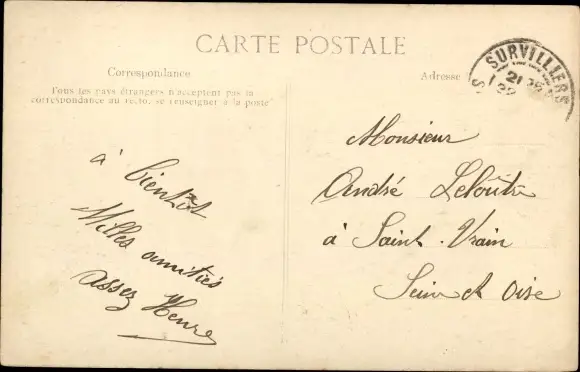 CARTE POSTALE
Correspondance
Tous les pays étrangers n'acceptent pas la
correspondance au recto, se renseigner à la poste
à bientôt
Milles amitiés
assez
Adresse
SURVILLIERS
21
Monsieur
André
à Saint-Vrain
Seine et Oise